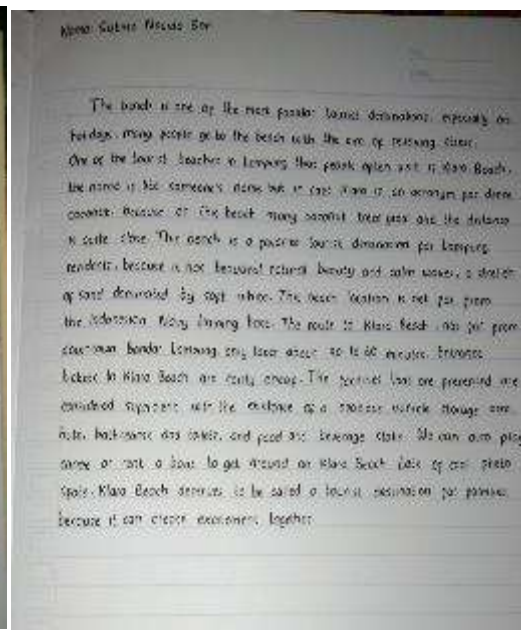 Nama: Sabrie
The beach is one of the most popular tourist destinations, especially on
holidays. many people go to the beach with the aim of relieving stress.
One of the tourist beaches in Lampung that people often visit is Klara Beach.
the name is like someone's name but in fact Klara is an acronym for
coconut. because at the beach many coconut trees grow and the distance
is quite close. The beach is a favorite tourist destination for Lampung
residents, because it has beautiful natural beauty and calm waves, a stretch
of sand dominated by soft white. The beach location is not far from
the Indonesian Navy training base. The route to Klara Beach not far from
downtown Bandar Lampung, only takes about 60 minutes. Entrance
tickets to Klara Beach are fairly cheap. The facilities that are presented are
considered sufficient with the existence of a vehicle storage area,
huts, bathrooms and toilets, and food and beverage stalls. We can also play
or rent a boat to get around on Klara Beach. Lots of cool photo
spots. Klara Beach deserves to be called a tourist destination for families
because it can deepen excitement together